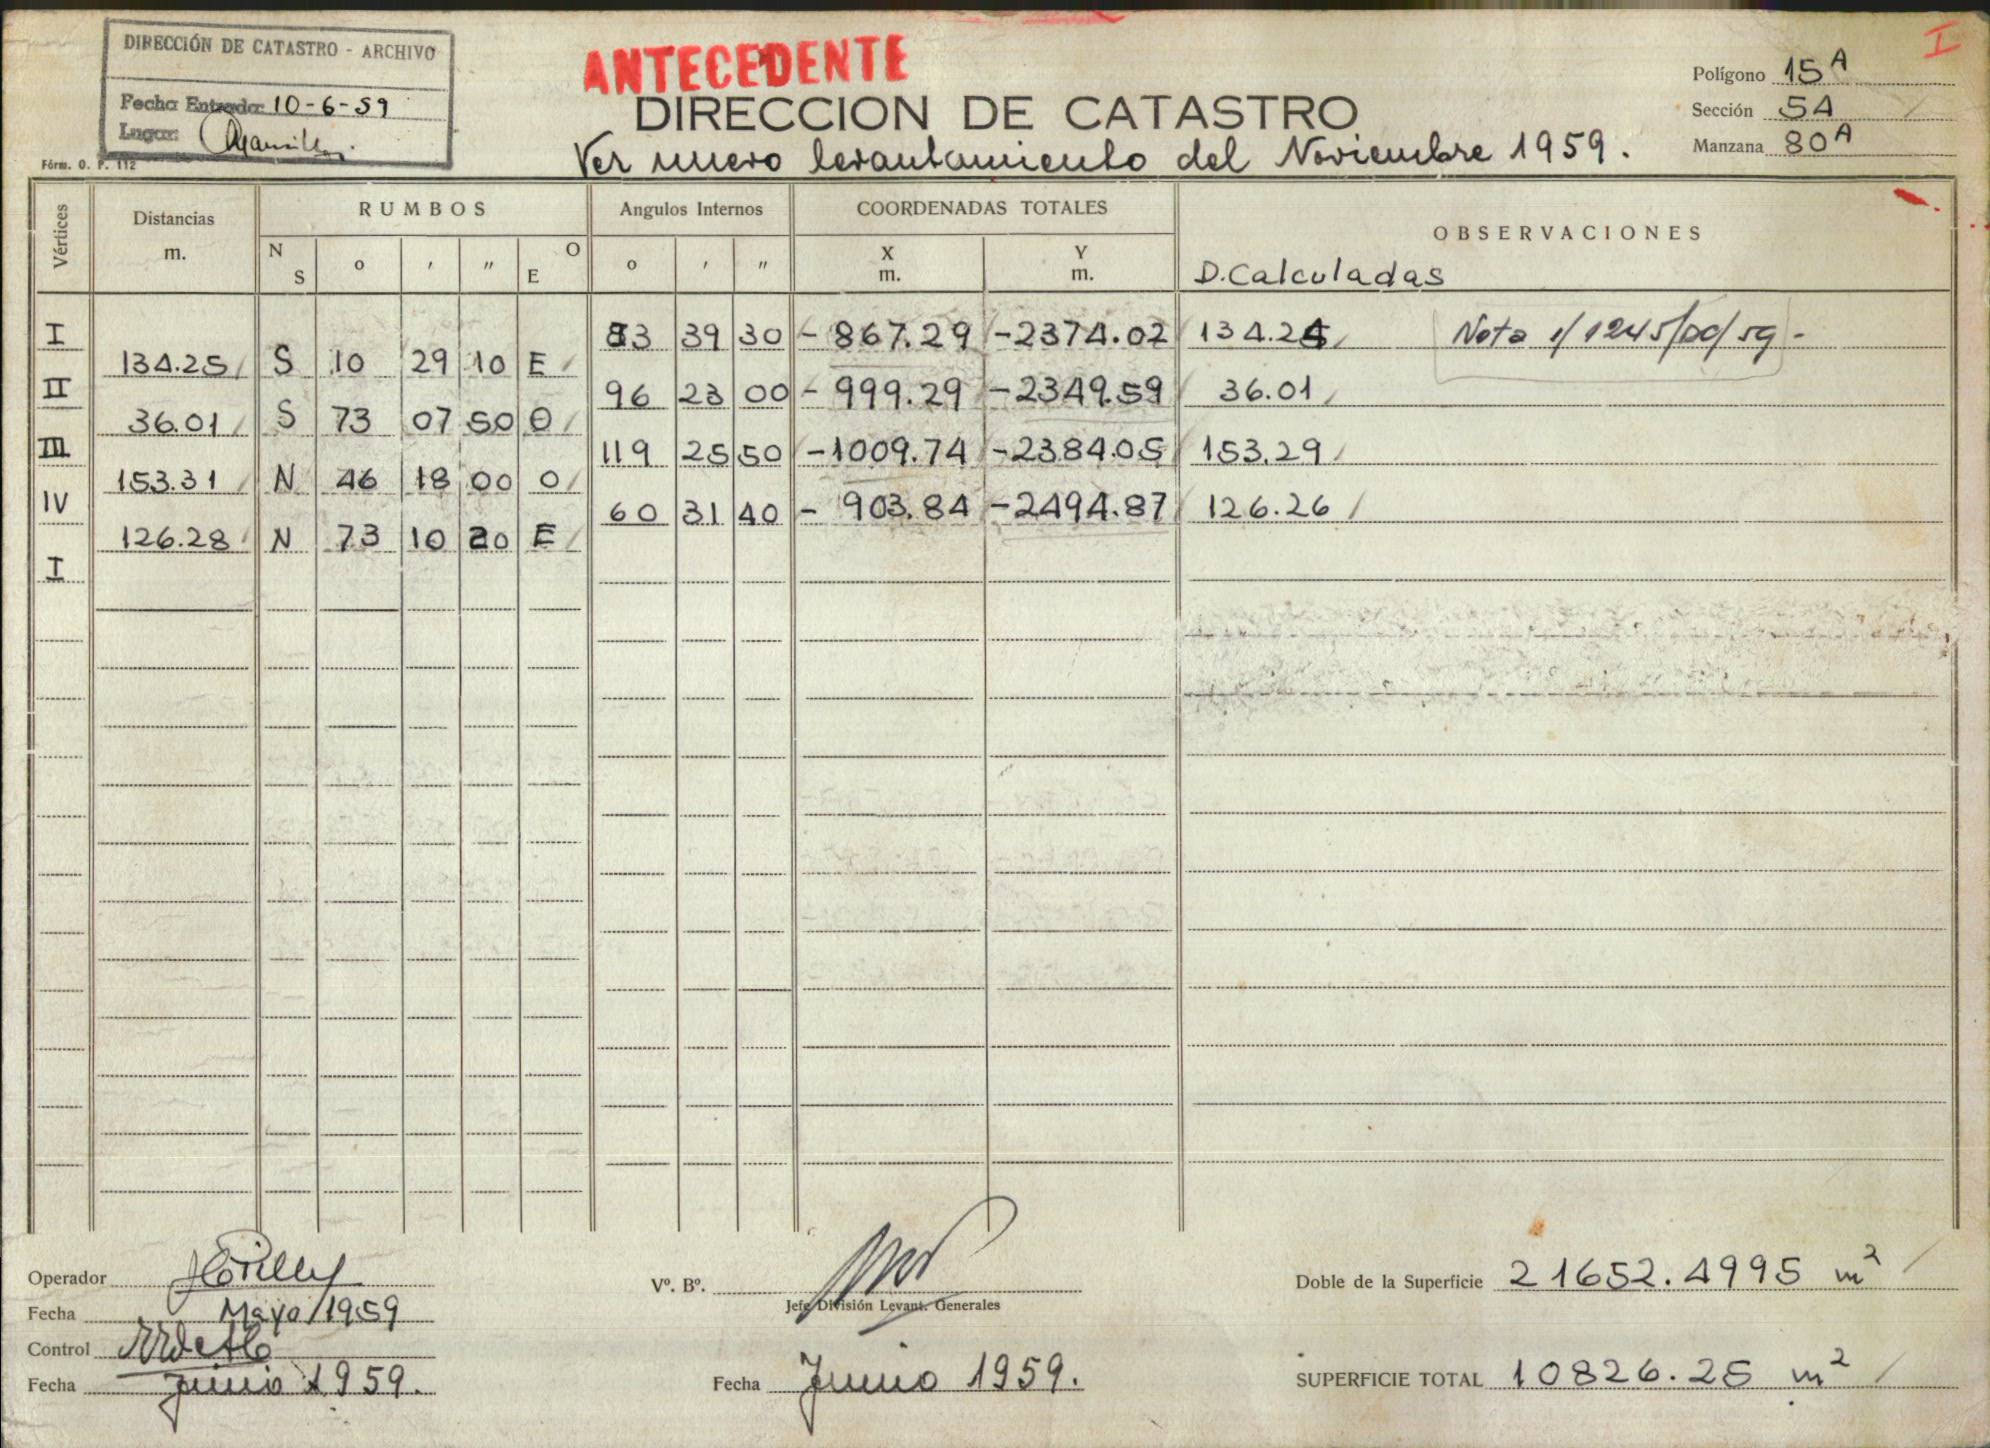 DIRECCIÓN DE CATASTRO - ARCHIVO
Fecha Entrada: 10-6-59
Lugar:
Fórm. O. P. 112
ANTECEDENTE
DIRECCION DE CATASTRO
Ver nuevo levantamiento del Noviembre 1959.
I
Polígono 15A
Sección 54
Manzana 80A
Vértices Distancias m. RUMBOS Angulos Internos COORDENADAS TOTALES OBSERVACIONES
N S o ' " O E o ' " X m. Y m. D. Calculadas
I 83 39 30 -867.29 -2374.02 134.25 Nota 1245/00/59-
134.25 S 10 29 10 E
II 96 23 00 -999.29 -2349.59 36.01
36.01 S 73 07 50 O
III 119 25 50 -1009.74 -2384.05 153.29
153.31 N 46 18 00 O
IV 60 31 40 -903.84 -2494.87 126.26
126.28 N 73 10 20 E
I
Operador
Fecha Mayo/1959
Control
Fecha Junio 1959.
Vº. Bº.
Jefe División Levant. Generales
Fecha Junio 1959.
Doble de la Superficie 21652.4995 m²
SUPERFICIE TOTAL 10826.25 m²